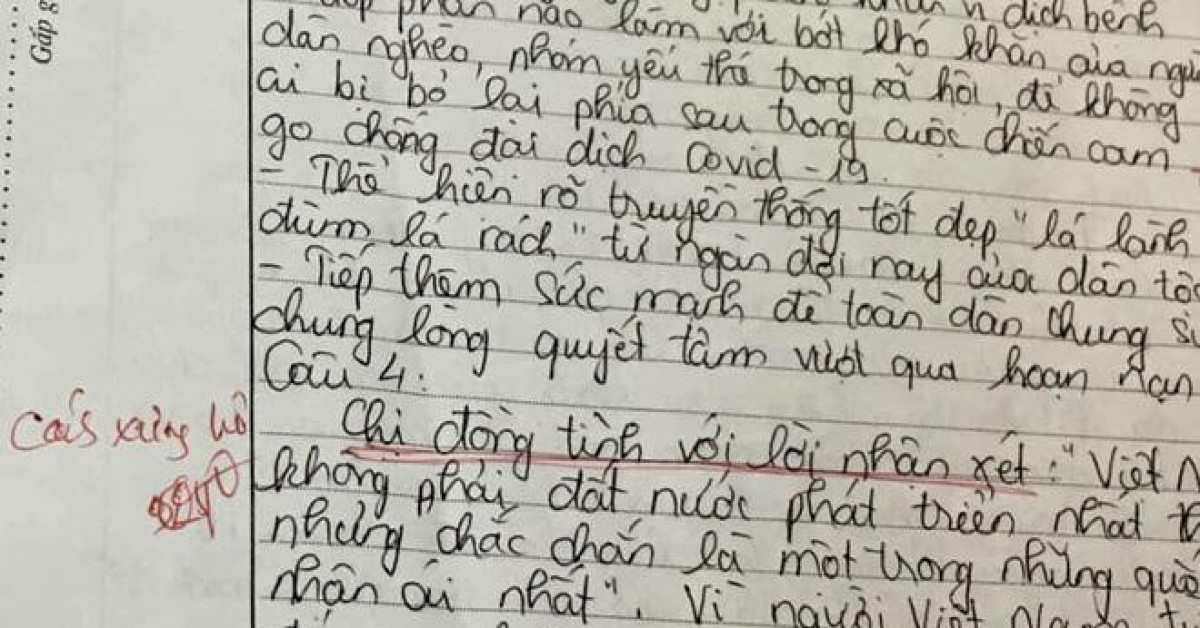 Gấp g
phần nào làm vơi bớt khó khăn của ngư
dân nghèo, nhóm yếu thế trong xã hội, để không
ai bị bỏ lại phía sau trong cuộc chiến cam
go chống đại dịch Covid-19.
- Thể hiện rõ truyền thống tốt đẹp "lá lành
đùm lá rách" từ ngàn đời nay của dân tộc
- Tiếp thêm sức mạnh để toàn dân chung sứ
chung lòng quyết tâm vượt qua hoạn nạn
Câu 4:
Cách xưng hô
Chị đồng tình với lời nhận xét: "Việt N
không phải đất nước phát triển nhất t
nhưng chắc chắn là một trong những quố
nhân ái nhất". Vì người Việt Nam